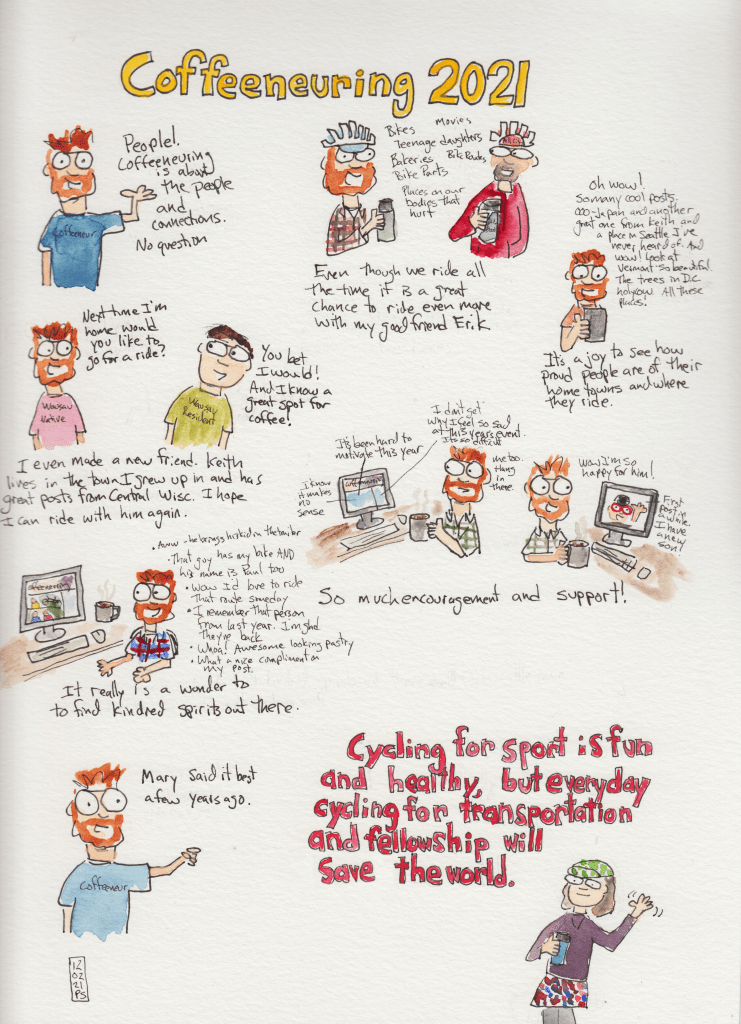 Coffeeneuring 2021
People!
Coffeeneuring
is about
the people
and
connections.
No question
Coffeeneur
Bikes
movies
Teenage daughters
Bakeries
Bike Racks
Bike Parts
Places on our
bodies that
hurt
Even though we ride all
the time it is a great
chance to ride even more
with my good friend Erik
Oh wow!
so many cool posts.
000-Japan and another
great one from Keith and
a place in Seattle I've
never heard of. And
wow! Look at
Vermont so beautiful.
The trees in D.C.
holy wow All these
places!
It's a joy to see how
proud people are of their
home towns and where
they ride.
Next time I'm
home would
you like to
go for a ride?
Wausau
Native
You bet
I would!
And I know a
great spot for
coffee!
Wausau
Resident
I even made a new friend. Keith
lives in the town I grew up in and has
great posts from Central Wisc. I hope
I can ride with him again.
It's been hard to
motivate this year
I don't get
why I feel so sad
at this years event.
Its so difficult
I know
it makes
no
sense
me too.
Hang
in
there.
Wow I'm so
happy for him!
First
post in
a while.
I have
a new
son!
So much encouragement and support!
• Aww - he brings his kid in the trailer
• That guy has my bike AND
his name is Paul too
• Wow I'd love to ride
that route someday
• I remember that person
from last year. I'm glad
They're back
• Whoa! Awesome looking pastry
• What a nice compliment on
my post.
It really is a wonder to
to find kindred spirits out there.
Mary said it best
a few years ago.
Coffeeneur
Cycling for sport is fun
and healthy, but everyday
cycling for transportation
and fellowship will
save the world.
12
02
21
PS